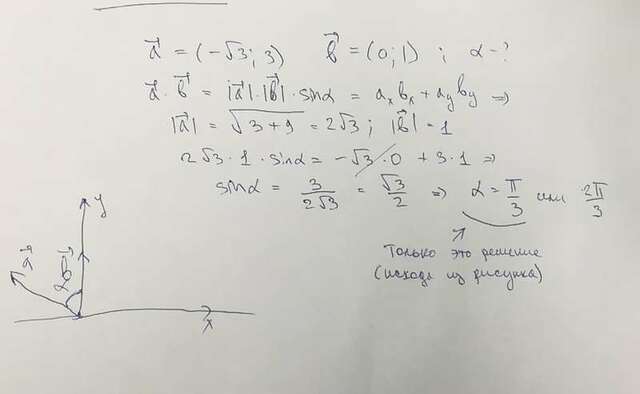 a⃗ = (-√3; 3) b⃗ = (0; 1) ; α - ?
a⃗ · b⃗ = |a⃗|·|b⃗|· sinα = aₓbₓ + a_y b_y ⇒
|a⃗| = √(3+9) = 2√3 ; |b⃗| = 1
2√3 · 1 · sinα = -√3 · 0 + 3·1 ⇒
sinα = 3/(2√3) = √3/2 ⇒ α = π/3 или 2π/3
Только это решение
(исходя из рисунка)
y
a⃗
α
b⃗
x